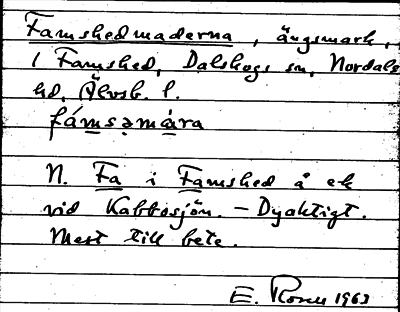 Famshedmaderna, ängsmark,
i Famshed, Dalskogs sn, Nordals
hd, Älvsb. l.
fámsəmàra
N. Fa i Famshed å ek
vid Kabbosjön. – Dyaktigt.
Mest till bete.
E. Rosell 1963